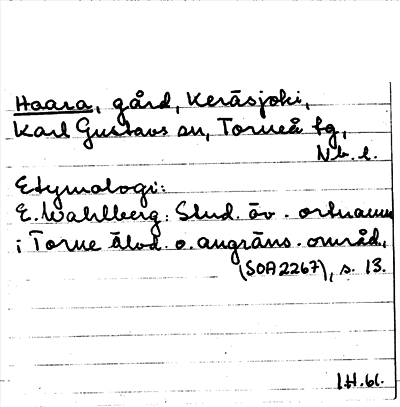 Haara, gård, Keräsjoki,
Karl Gustavs sn, Torneå tg,
Nb. l.
Etymologi:
E. Wahlberg: Stud. öv. ortnamn
i Torne älvd. o. angräns. områd.
(SOA 2267), s. 13.
I.H. 61.